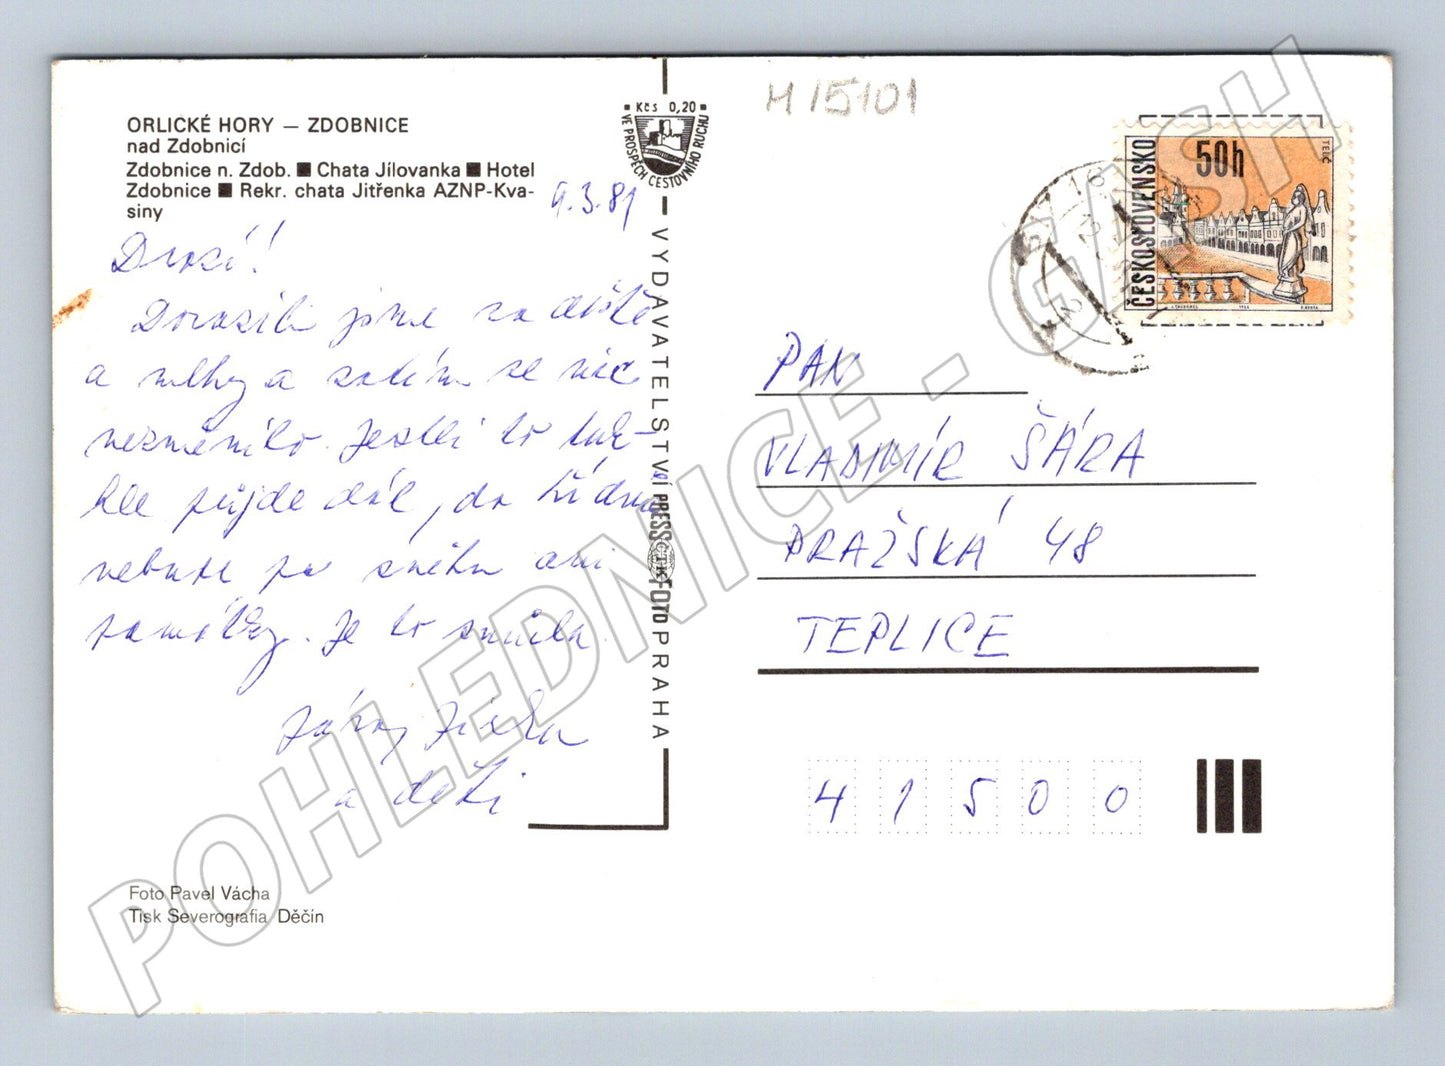 ORLICKÉ HORY — ZDOBNICE
nad Zdobnicí
Zdobnice n. Zdob. ■ Chata Jílovanka ■ Hotel
Zdobnice ■ Rekr. chata Jitřenka AZNP-Kva-
siny
9.3.81
Drazí!
Dorazili jsme za deště
a mlhy a zatím se nic
nezměnilo. Jestli to tak-
hle půjde dál, do týdne
nebude po sněhu ani
památky. Je to smůla.
Jirka
a děti
Foto Pavel Vácha
Tisk Severografia Děčín
■ Kčs 0,20 ■
VE PROSPĚCH CESTOVNÍHO RUCHU
VYDAVATELSTVÍ PRESSFOTO PRAHA
ČTK
M 15101
ČESKOSLOVENSKO
50h
TELČ
PAN
VLADIMÍR ŠÁRA
PRAŽSKÁ 48
TEPLICE
41500
POHLEDNICE - GASH